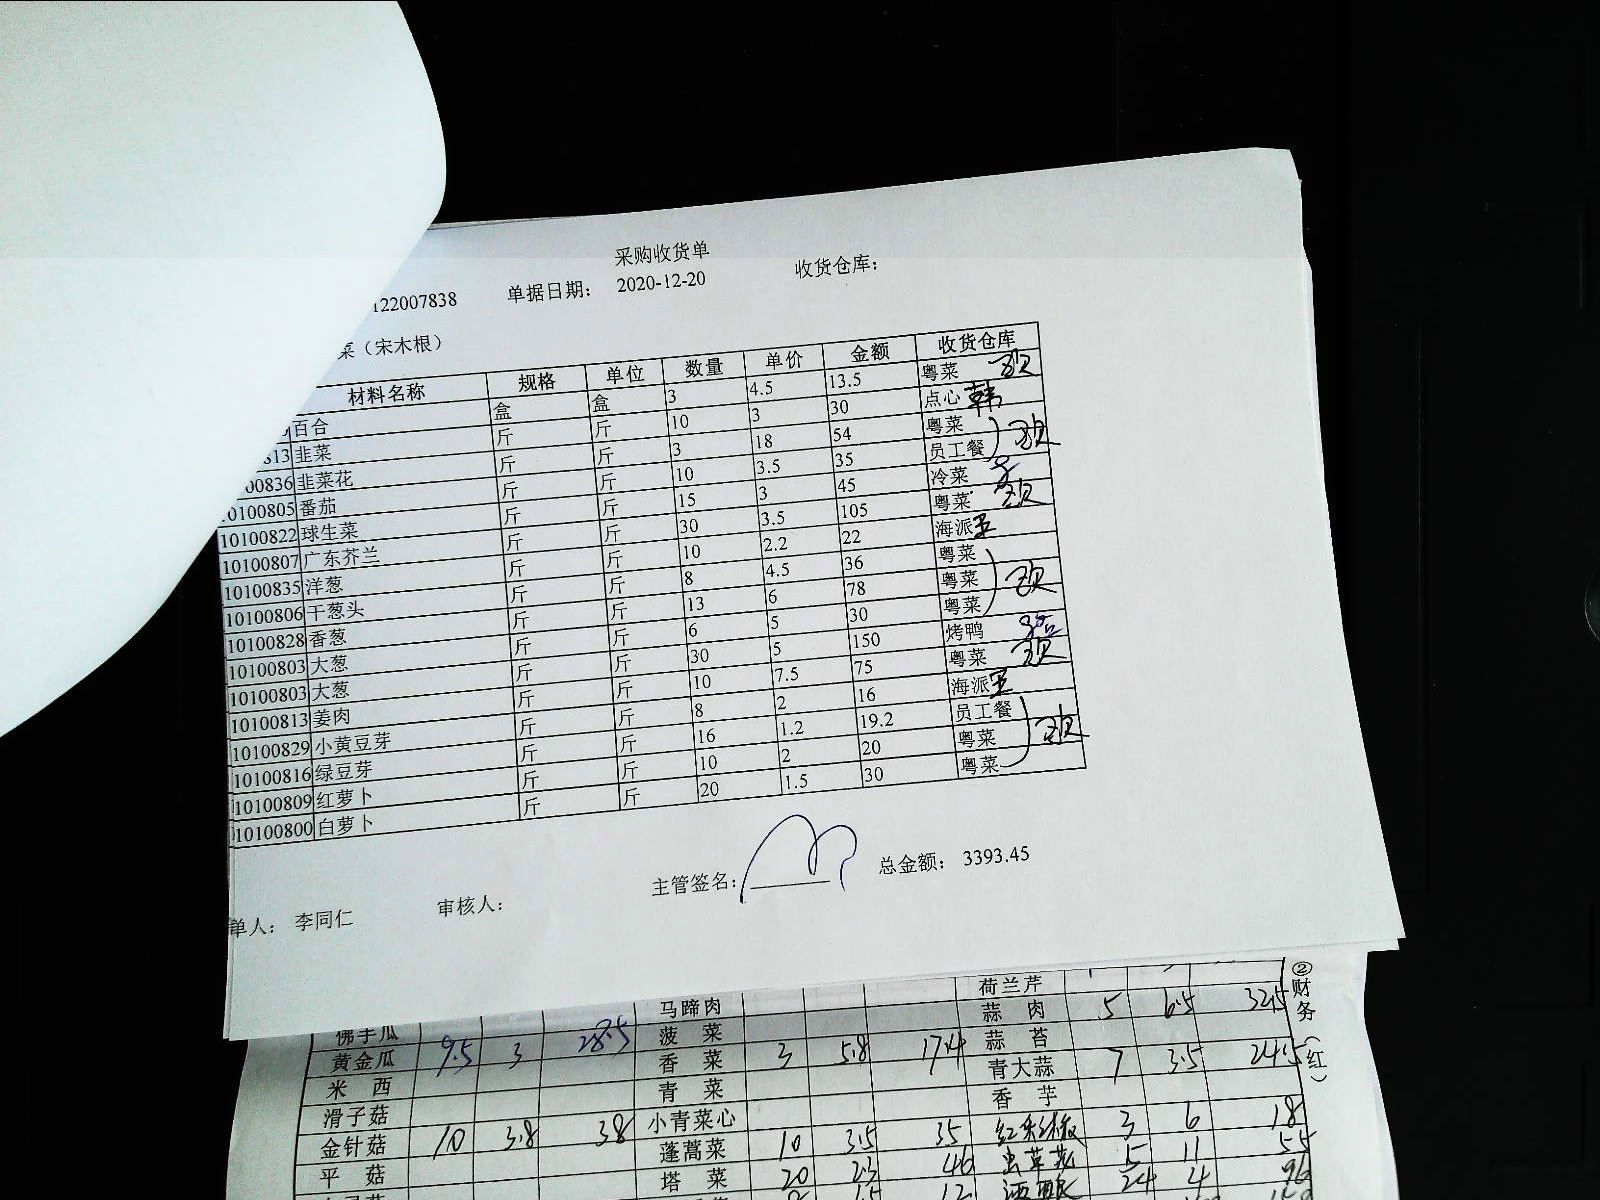 采购收货单
122007838 单据日期： 2020-12-20 收货仓库：
菜（宋木根）
材料名称 规格 单位 数量 单价 金额 收货仓库
百合 盒 盒 3 4.5 13.5 粤菜
813 韭菜 斤 斤 10 3 30 点心 韩
00836 韭菜花 斤 斤 3 18 54 粤菜
10100805 番茄 斤 斤 10 3.5 35 员工餐
10100822 球生菜 斤 斤 15 3 45 冷菜
10100807 广东芥兰 斤 斤 30 3.5 105 粤菜
10100835 洋葱 斤 斤 10 2.2 22 海派 王
10100806 干葱头 斤 斤 8 4.5 36 粤菜
10100828 香葱 斤 斤 13 6 78 粤菜
10100803 大葱 斤 斤 6 5 30 粤菜
10100803 大葱 斤 斤 30 5 150 烤鸭
10100813 姜肉 斤 斤 10 7.5 75 粤菜
10100829 小黄豆芽 斤 斤 8 2 16 海派 王
10100816 绿豆芽 斤 斤 16 1.2 19.2 员工餐
10100809 红萝卜 斤 斤 10 2 20 粤菜
10100800 白萝卜 斤 斤 20 1.5 30 粤菜
单人： 李同仁 审核人： 主管签名： 总金额： 3393.45
荷兰芹
马蹄肉 蒜肉 5 6.5 32.5
佛手瓜 菠菜 蒜苔
黄金瓜 9.5 3 28.5 香菜 3 5.8 17.4 青大蒜 7 3.5 24.5
米西 青菜 香芋
滑子菇 小青菜心 3 6 18
金针菇 10 3.8 38 蓬蒿菜 10 3.5 35 虫草花 5 11 55
平菇 塔菜 20 2.3 46 24 4 96
②财务（红）